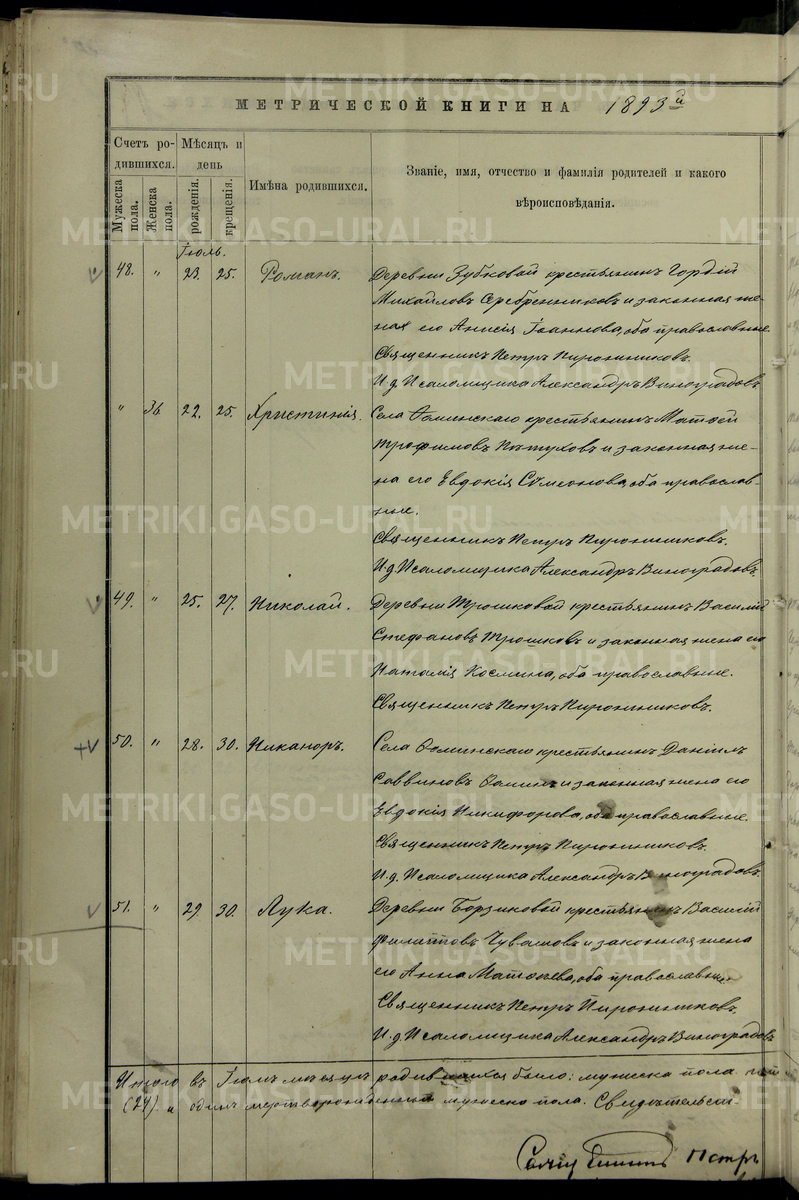 МЕТРИЧЕСКОЙ КНИГИ НА 1893й
Счетъ ро-
дившихся.
Мѣсяцъ и
день
Имѣна родившихся.
Званіе, имя, отчество и фамилія родителей и какого
вѣроисповѣданія.
Мужеска пола.
Женска пола.
рожденія.
крещенія.
Іюль.
48. " 23. 25. Романъ. Деревни Зубковой крестьянинъ Гордій
Михайловъ Серебренниковъ и законная же-
ная его Анисія Іоаннова, оба православные.
Священникъ Петръ Пироншиковъ.
И.д. Псаломщика Александръ Виноградовъ.
" 36 22. 25. Христинія. Села крестьянинъ Матѳей
Трофимовъ Пѣтуховъ и законная же-
на его Евдокія Сѵмеонова, оба православ-
ные.
Священникъ Петръ Пироншиковъ.
И.д. Псаломщика Александръ Виноградовъ.
49. " 25. 27. Николай. Деревни Трошковой крестьянинъ Василій
Стефановъ Трошковъ и законная жена его
Наталія Космина, оба православные.
Священникъ Петръ Пироншиковъ.
50. " 28. 30. Никаноръ. Села крестьянинъ Даніилъ
Саввиновъ и законная жена его
Евдокія Никифорова, оба православные.
Священникъ Петръ Пироншиковъ.
И.д. Псаломщика Александръ Виноградовъ.
51. " 29. 30. Лука. Деревни Борзиковой крестьянинъ Василій
Филипповъ Чувашовъ и законная жена
его Анна Матѳеева, оба православные.
Священникъ Петръ Пироншиковъ.
И.д. Псаломщика Александръ Виноградовъ
Итого въ Іюлѣ мѣсяцѣ родившихся было: мужеска пола
(24) и одинъ мертворожденный мужеска пола. Свидѣтельст-
Петръ
METRIKI.GASO-URAL.RU